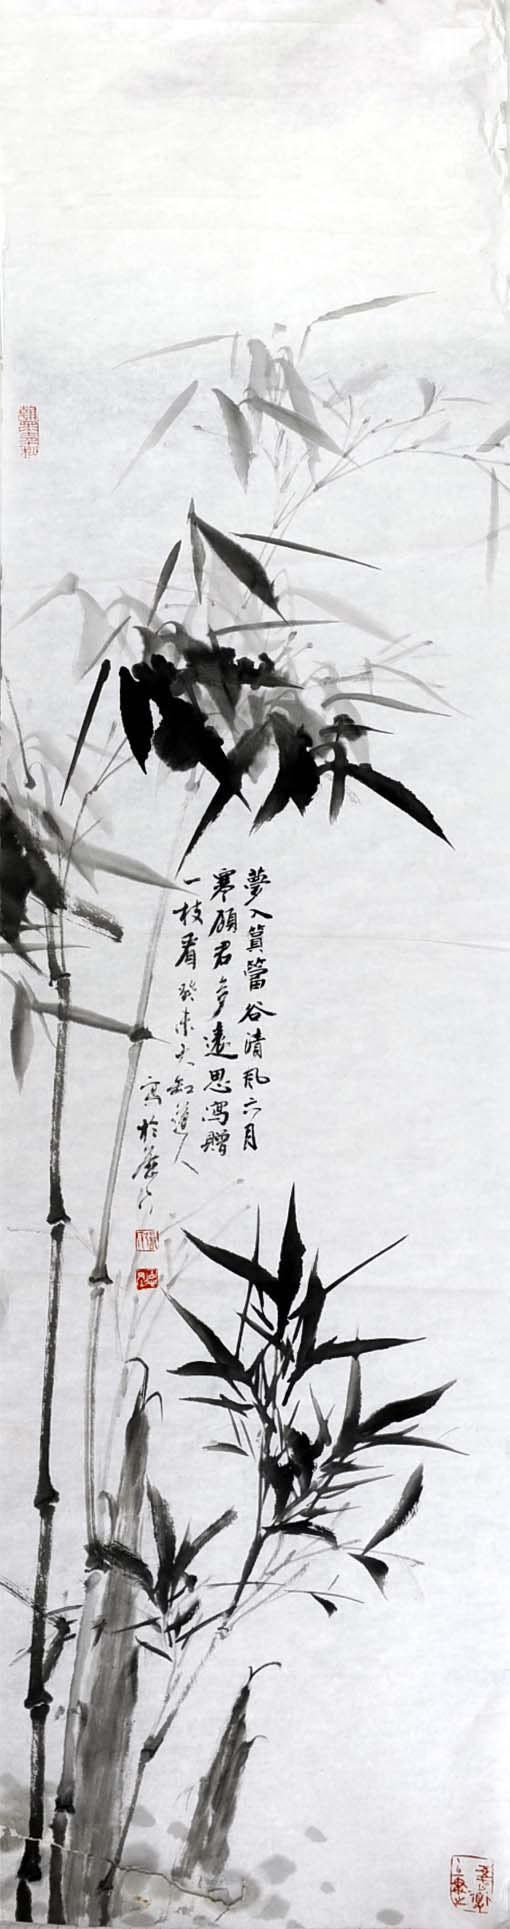 夢入篔簹谷清風六月
寒願君多遠思寫贈
一枝看癸未大缶道人
寫於